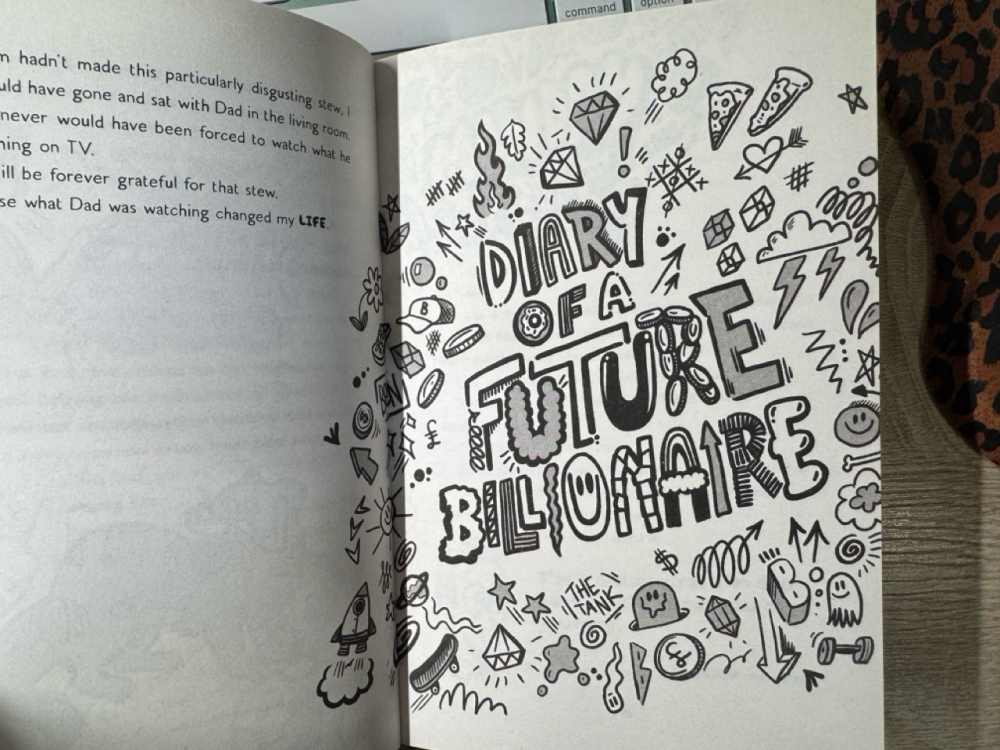 command
option
hadn't made this particularly disgusting stew, I
have gone and sat with Dad in the living room.
never would have been forced to watch what he
on TV.
be forever grateful for that stew.
what Dad was watching changed my LIFE.
DIARY
OF A
FUTURE
BILLIONAIRE
THE
TANK
B
B
$
£
£